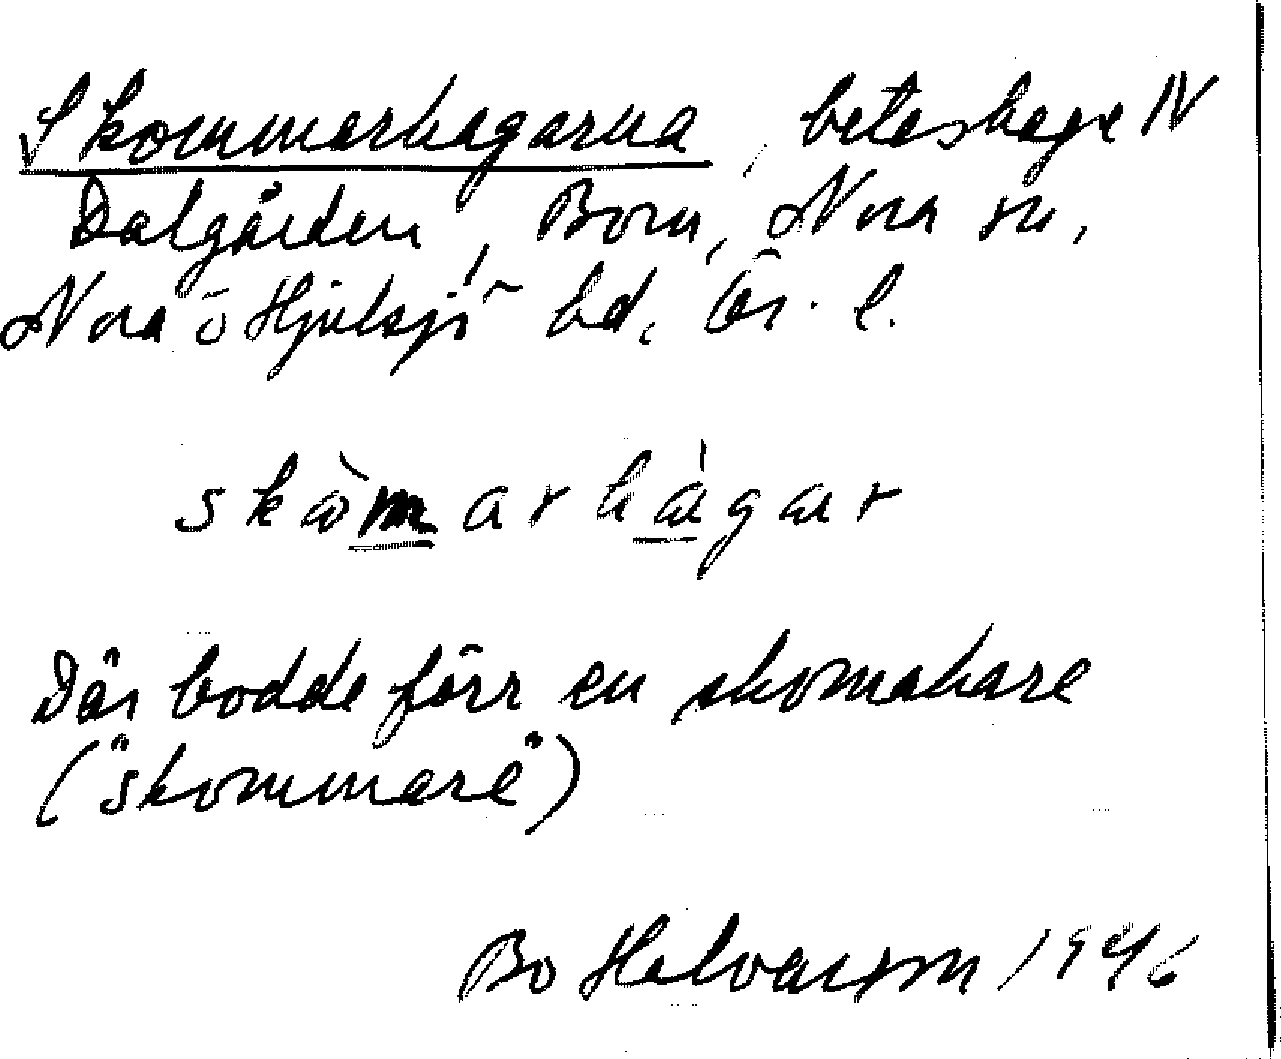 Skommarhagarna, beteshage N
Dalgården, Born, Nora sn,
Nora o Hjulsjö bd. Ör. l.
skòmarhàgar
Där bodde förr en skomakare
("skommare")
Bo Helvarsson 1946